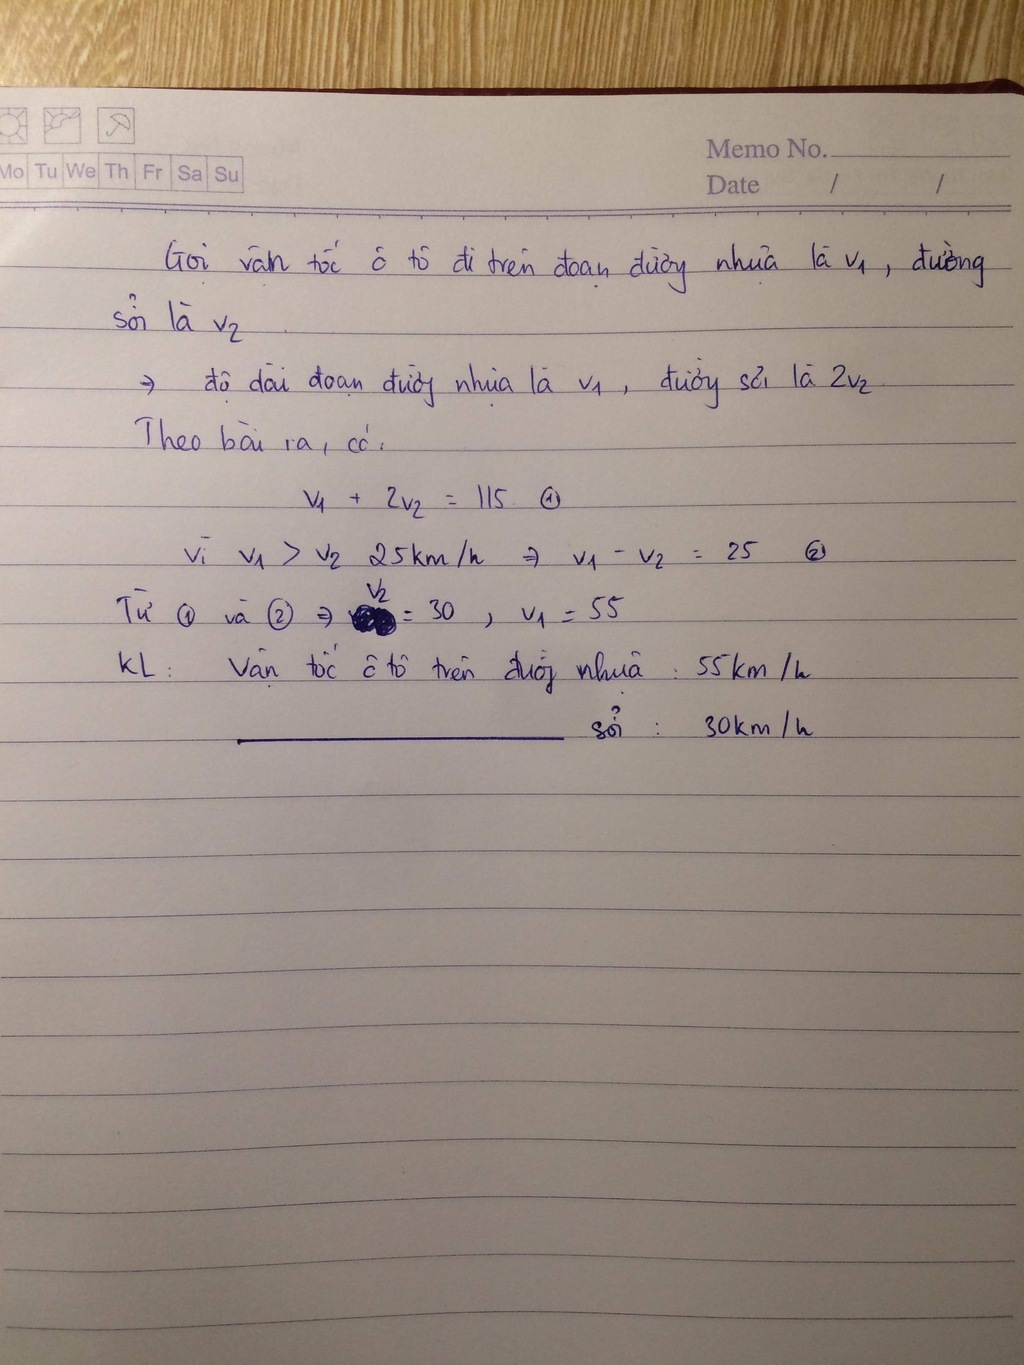 Mo Tu We Th Fr Sa Su
Memo No.
Date / /
Gọi vận tốc ô tô đi trên đoạn đường nhựa là v1, đường
sỏi là v2
⇒ độ dài đoạn đường nhựa là v1, đường sỏi là 2v2
Theo bài ra, có:
v1 + 2v2 = 115 ①
vì v1 > v2 25km/h ⇒ v1 - v2 = 25 ②
Từ ① và ② ⇒ v2 = 30, v1 = 55
KL: Vận tốc ô tô trên đường nhựa : 55km/h
sỏi : 30km/h